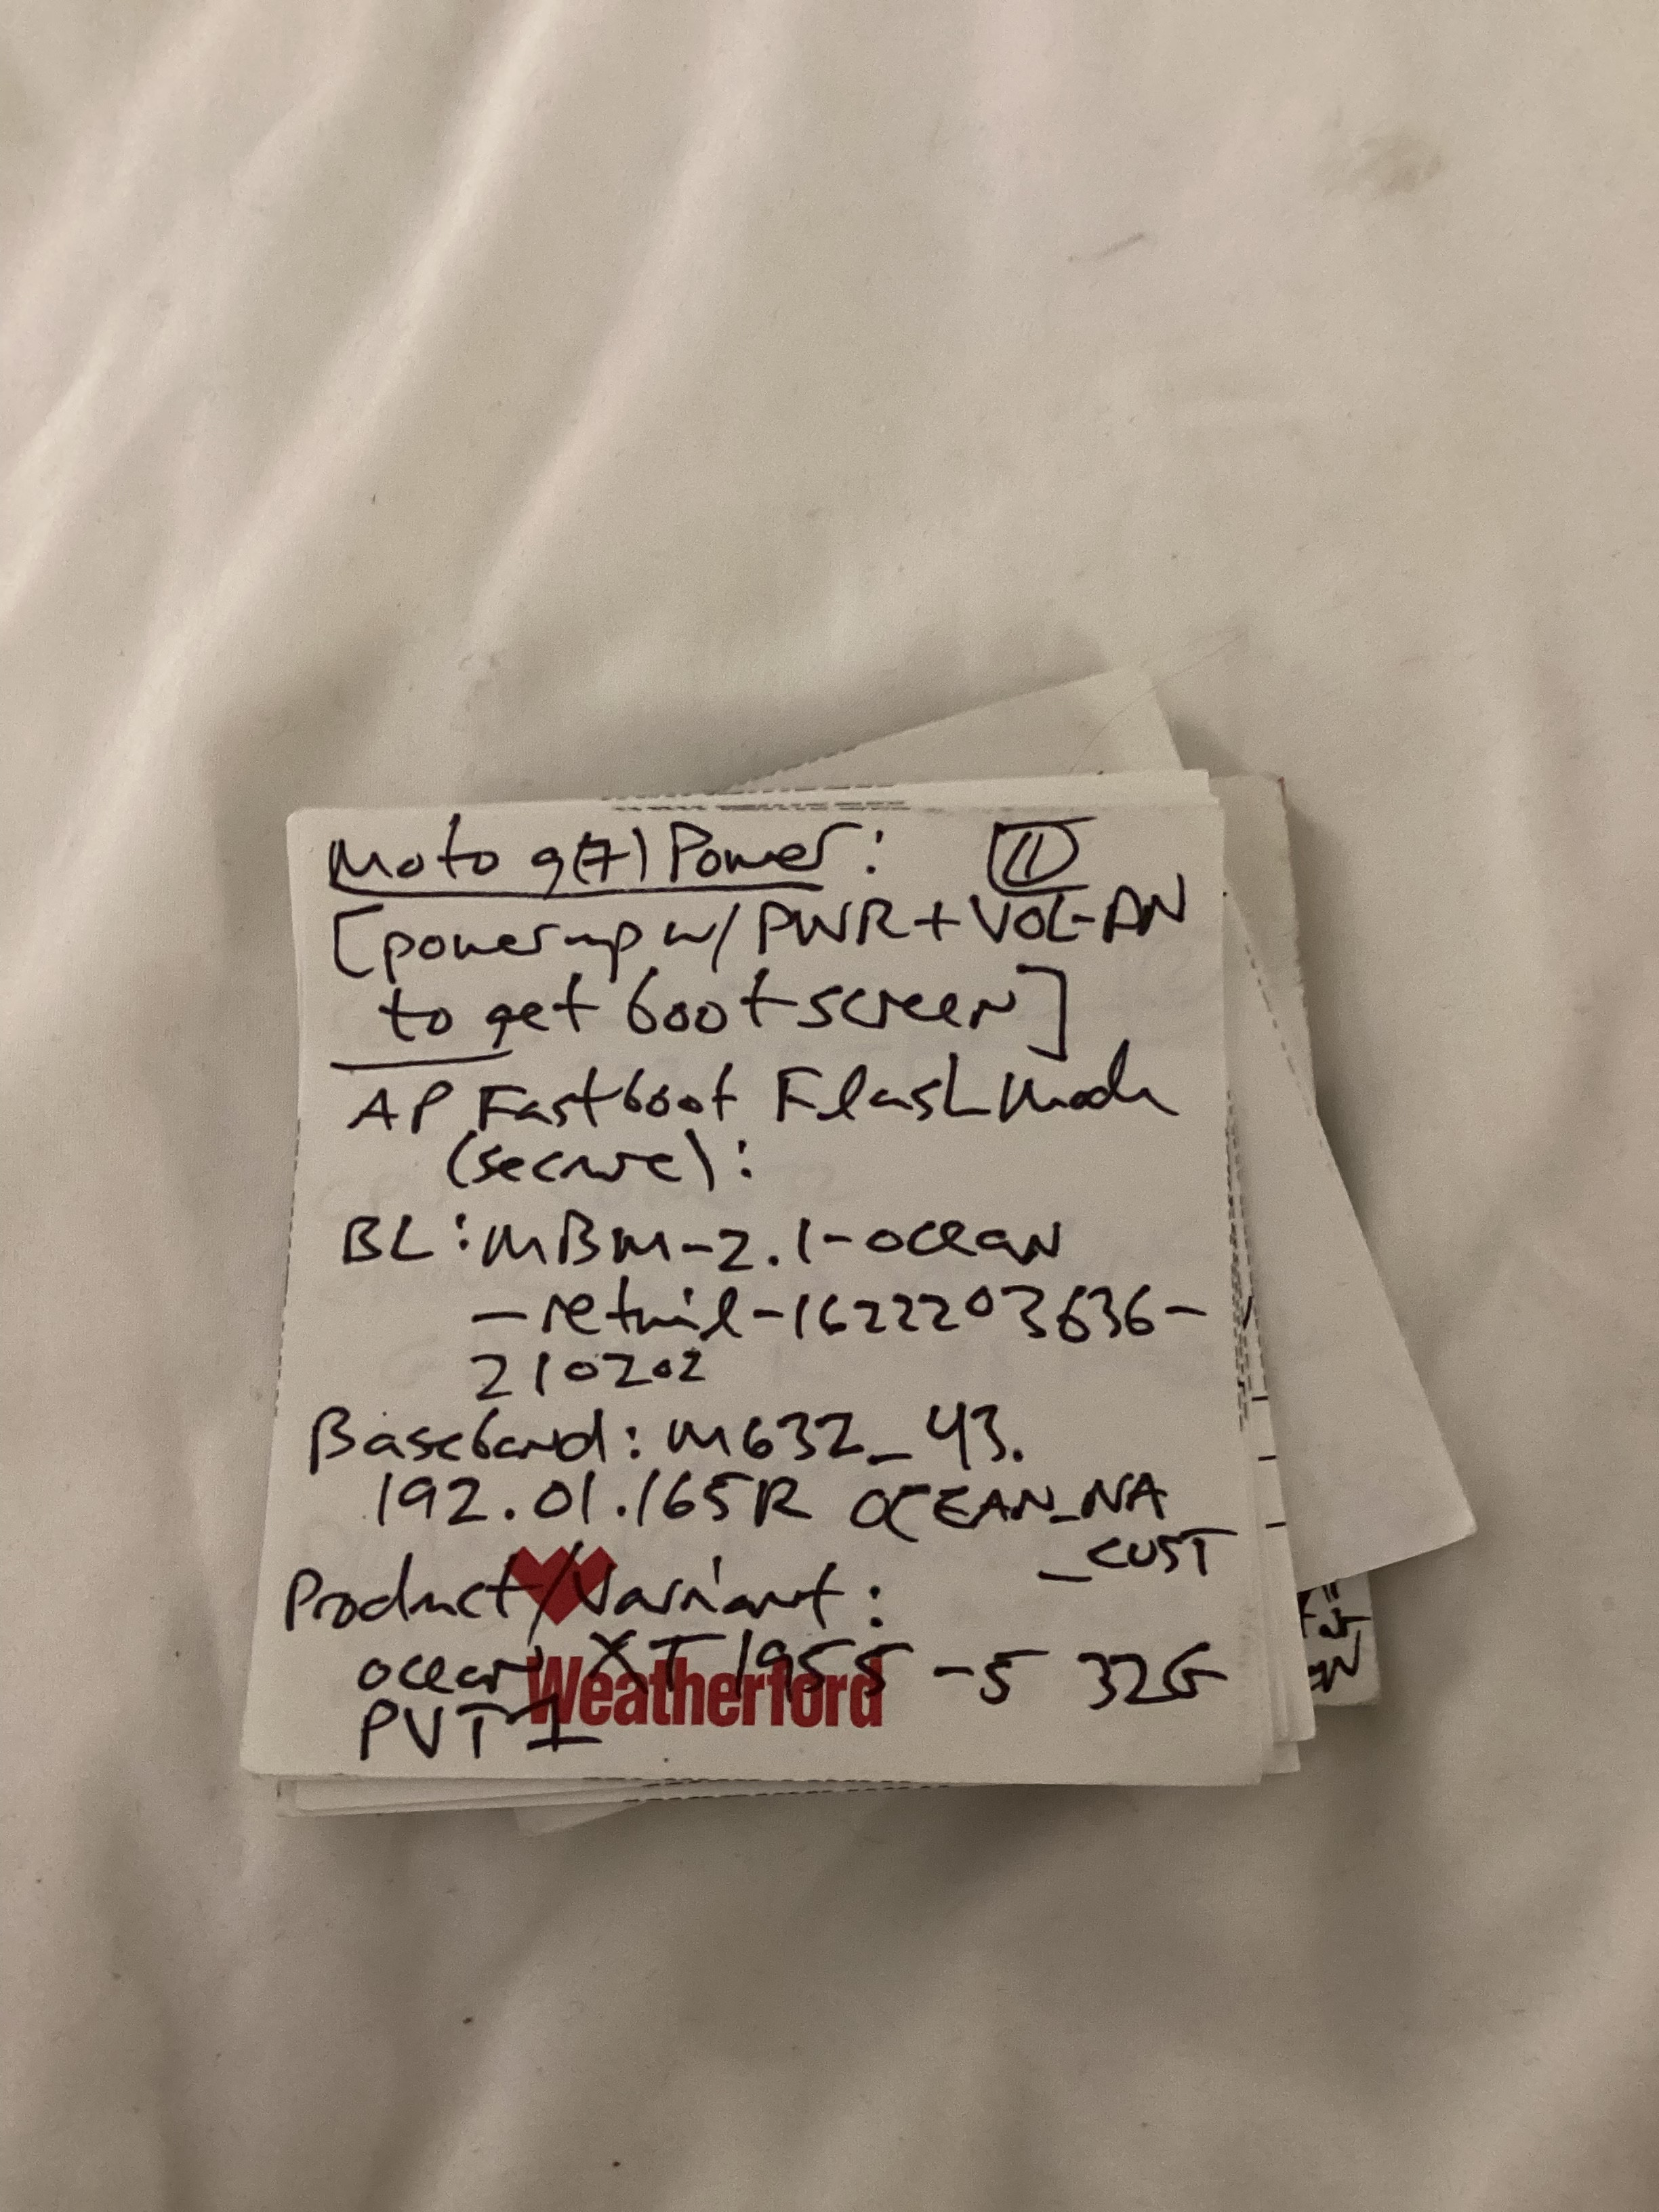 Moto g(7) Power: 11
[power-up w/ PWR + VOL-DN
to get bootscreen]
AP Fastboot Flash Mode
(secure):
BL: MBM-2.1-ocean
-retail-1622203636-
210202
Baseband: M632_43.
192.01.165R OCEAN_NA
_CUST
Product/Variant:
ocean XT1955-5 32G
PVT1
Weatherford